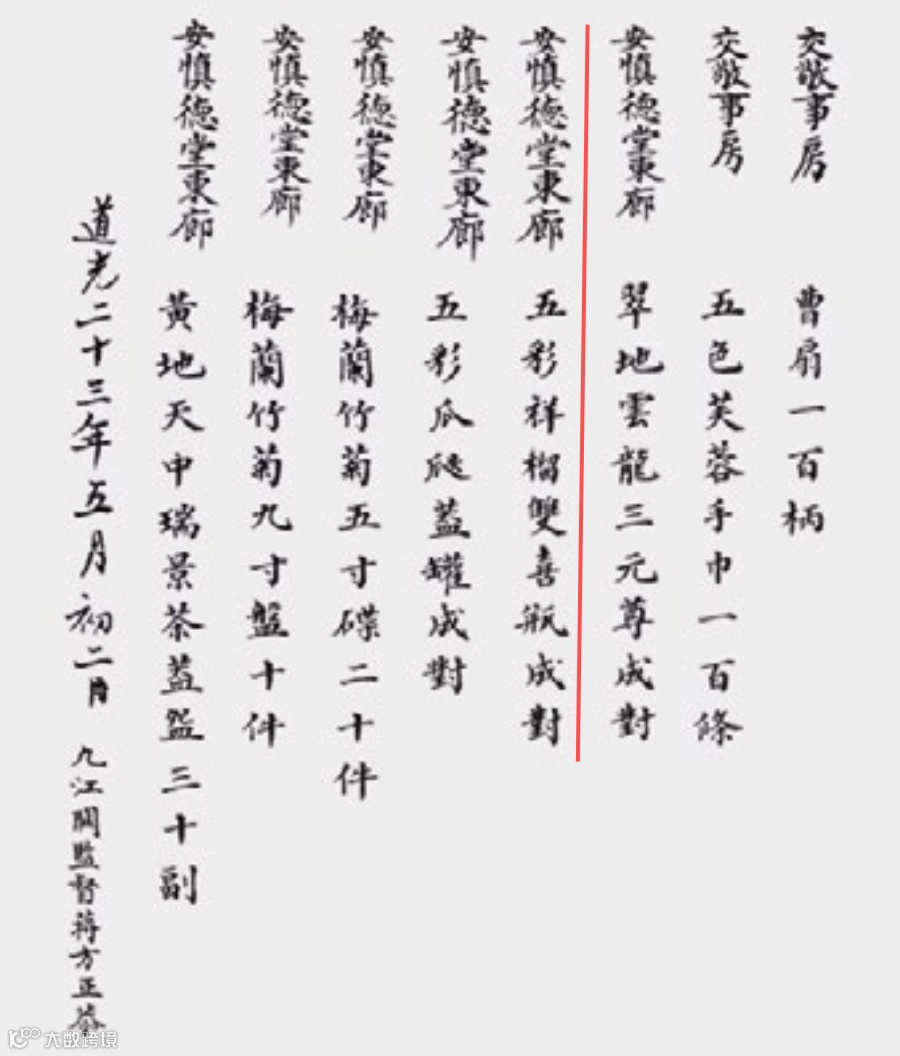 交敬事房 曹扇一百柄
交敬事房 五色芙蓉手巾一百條
安慎德堂東廊 翠地雲龍三元尊成對
安慎德堂東廊 五彩祥榴雙喜瓶成對
安慎德堂東廊 五彩瓜瓞蓋罐成對
安慎德堂東廊 梅蘭竹菊五寸碟二十件
安慎德堂東廊 梅蘭竹菊九寸盤十件
安慎德堂東廊 黃地天中瑞景茶蓋盌三十副
道光二十三年五月初二日 九江關監督蔣方正恭
大数跨境